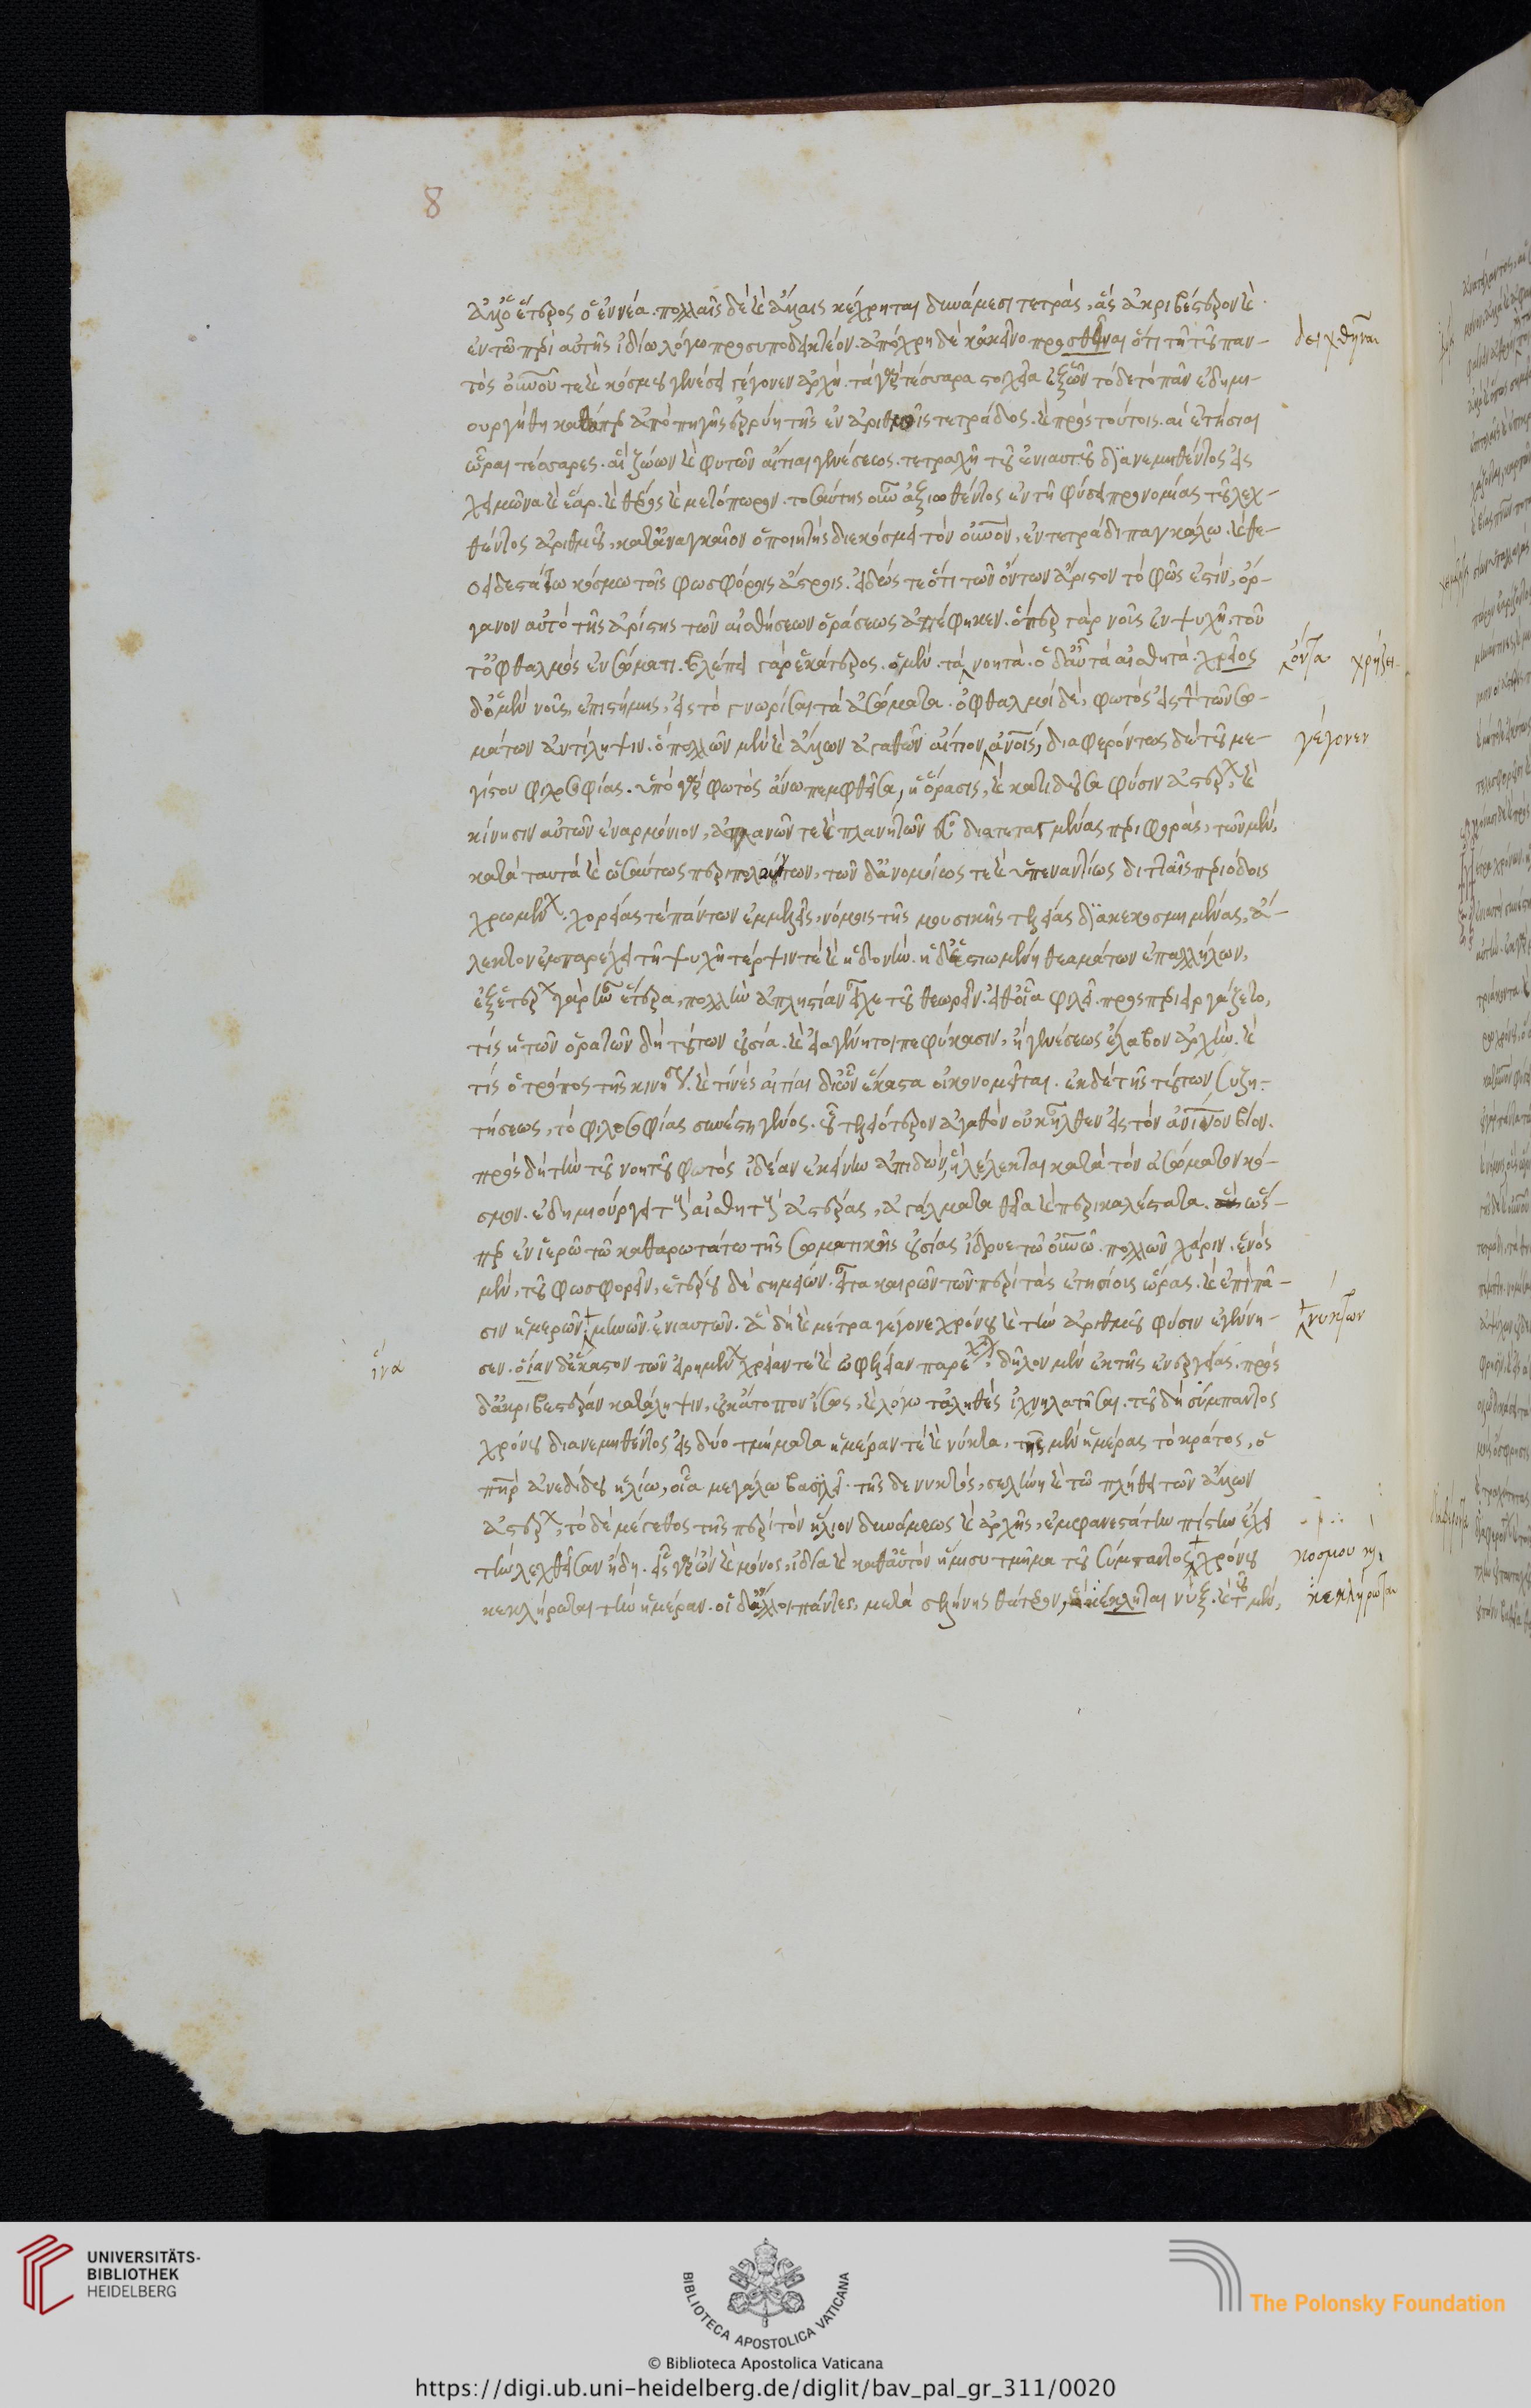 8
ἄλλο ἕτερος ὁ ἐννέα. πολλαῖς δὲ καὶ ἄλλαις κέχρηται δυνάμεσι τετράς, ἃς ἀκριβέστερον καὶ
ἐν τῷ περὶ αὐτῆς ἰδίῳ λόγῳ προσυποδεικτέον. ἀπόχρη δὲ κἀκεῖνο προστεθῆναι ὅτι τῇ τοῦ παν-
τὸς οὐνοῦ τε καὶ κόσμου γενέσει γέγονεν ἀρχή. τὰ γὰρ τέσσαρα στοιχεῖα ἐξ ὧν τόδε τὸ πᾶν ἐδημι-
ουργήθη καθάπερ ἀπὸ πηγῆς ἐρρύη τῆς ἐν ἀριθμοῖς τετράδος. καὶ πρὸς τούτοις. αἱ ἐτήσιαι
ὧραι τέσσαρες. αἱ ζώων καὶ φυτῶν αἴτιαι γενέσεως. τετραχῇ τοῦ ἐνιαυτοῦ διανεμηθέντος εἰς
χειμῶνα καὶ ἔαρ. καὶ θέρος καὶ μετόπωρον. τοσαύτης οὖν ἀξιωθέντος ἐν τῇ φύσει προνομίας τοῦ λεχ-
θέντος ἀριθμοῦ, κατἀναγκαῖον ὁ ποιητὴς διεκόσμει τὸν οὐνόν, ἐν τετράδι παγκάλῳ. καὶ θε-
οειδεστάτῳ κόσμῳ τοῖς φωσφόροις ἄστροις. εἰδώς τε ὅτι τῶν ὄντων ἄριστον τὸ φῶς ἐστίν, ὄρ-
γανον αὐτὸ τῆς ἀρίστης τῶν αἰσθήσεων ὁράσεως ἀπέφηνεν. ὅπερ γὰρ νοῦς ἐν ψυχῇ, τοῦ
τὀφθαλμὸς ἐν σώματι. βλέπει γὰρ ἑκάτερος. ὁ μὲν. τὰ νοητά. ὁ δαὖ τὰ αἰσθητά. χρεῖος
δὁμὲν νοῦς, ἐπιστήμης, εἰς τὸ γνωρίσαι τὰ ἀσώματα. ὀφθαλμοὶ δέ, φωτὸς εἰς τὴν τῶν σω-
μάτων ἀντίληψιν. ὁ πολλῶν μὲν καὶ ἄλλων ἀγαθῶν αἴτιον ἀνοις, διαφερόντως δὲ τοῦ με-
γίστου φιλοσοφίας. ὑπὸ γὰρ φωτὸς ἄνω πεμφθεῖσα, ἡ ὅρασις, καὶ κατιδοῦσα φύσιν ἀστέρων, καὶ
κίνησιν αὐτῶν ἐναρμόνιον, ἀπλανῶν τε καὶ πλανήτων εὖ διατεταγμένας περιφοράς, τῶν μὲν,
κατὰ ταυτὰ καὶ ὡσαύτως περιπολούντων, τῶν δἀνομοίως τε καὶ ὑπεναντίως διτταῖς περιόδοις
χρωμένων. χορείας τὲ πάντων ἐμμελεῖς, νόμοις τῆς μουσικῆς τελείας διακεκοσμημένας, ἄ-
λεκτον ἐμπαρέχει τῇ ψυχῇ τέρψιν τὲ καὶ ἡδονήν. ἡ δὲ ἑστιωμένη θεαμάτων ἐπαλλήλων,
ἐξ ἑτέρων γὰρ ἦν ἕτερα, πολλὴν ἀπληστίαν εἶχε τοῦ θεωρεῖν. εἶθοἷα φιλεῖ. προσπεριειργάζετο,
τίς ἡ τῶν ὁρατῶν δὴ τούτων οὐσία. καὶ εἰ ἀγένητοι πεφύκασιν, ἢ γενέσεως ἔλαβον ἀρχήν. καὶ
τίς ὁ τρόπος τῆς κινήσεως. καὶ τίνες αἰτίαι διὧν ἕκαστα οἰκονομεῖται. ἐκ δὲ τῆς τούτων συζη-
τήσεως, τὸ φιλοσοφίας συνέστη γένος. οὗ τελειότερον ἀγαθὸν οὐκ ἦλθεν εἰς τὸν ἀνινον βίον.
πρὸς δὴ τὴν τοῦ νοητοῦ φωτὸς ἰδέαν ἐκείνην ἀπιδών, ἣ λέλεκται κατὰ τὸν ἀσώματον κό-
σμον. ἐδημιούργει τοὺς αἰσθητοὺς ἀστέρας, ἀγάλματα θεῖα καὶ περικαλέστατα. ὥς-
περ ἐν ἱερῷ τῷ καθαρωτάτῳ τῆς σωματικῆς οὐσίας ἵδρυε τῷ οὐνῷ. πολλῶν χάριν. ἑνὸς
μὲν, τοῦ φωσφορεῖν, ἑτέρου δὲ σημείων. εἶτα καιρῶν τῶν περὶ τὰς ἐτησίους ὥρας. καὶ ἐπὶ πᾶ-
σιν ἡμερῶν μηνῶν. ἐνιαυτῶν. ἃ δὴ καὶ μέτρα γέγονε χρόνου καὶ τὴν ἀριθμοῦ φύσιν ἐγέννη-
σεν. οἵαν δἕκαστον τῶν εἰρημένων χρείαν τὲ καὶ ὠφέλειαν παρέχεται. δῆλον μὲν ἐκ τῆς ἐνεργείας. πρὸς
δἀκριβεστέραν κατάληψιν, οὐκ ἄτοπον ἴσως, καὶ λόγῳ τἀληθὲς ἰχνηλατῆσαι. τοῦ δὴ σύμπαντος
χρόνου διανεμηθέντος εἰς δύο τμήματα ἡμέραν τὲ καὶ νύκτα, τῆς μὲν ἡμέρας τὸ κράτος, ὁ
πηρ ἀνεδίδου ἡλίῳ, οἷα μεγάλῳ βασιλεῖ. τῆς δε νυκτός, σελήνῃ καὶ τῷ πλήθει τῶν ἄλλων
ἀστέρων, τὸ δὲ μέγεθος τῆς περὶ τὸν ἥλιον δυνάμεως καὶ ἀρχῆς, ἐμφανεστάτην πίστιν ἔχει
τὴν λεχθεῖσαν ἤδη. εἷς γὰρ ὢν καὶ μόνος, ἰδία καὶ καθαὑτὸν ἥμισυ τμῆμα τοῦ σύμπαντος χρόνου
κεκλήρωται τὴν ἡμέραν. οἱ δἄλλοι πάντες, μετὰ σελήνης θάτερον, ὃ κέκληται νύξ. καὶ τοῦ μὲν,
δειχθῆναι
ὄντα χρήζει
γέγονεν
νυκτῶν
ἵνα
κόσμου
κεκλήρωται
UNIVERSITÄTS-
BIBLIOTHEK
HEIDELBERG
BIBLIOTECA APOSTOLICA VATICANA
The Polonsky Foundation
© Biblioteca Apostolica Vaticana
https://digi.ub.uni-heidelberg.de/diglit/bav_pal_gr_311/0020